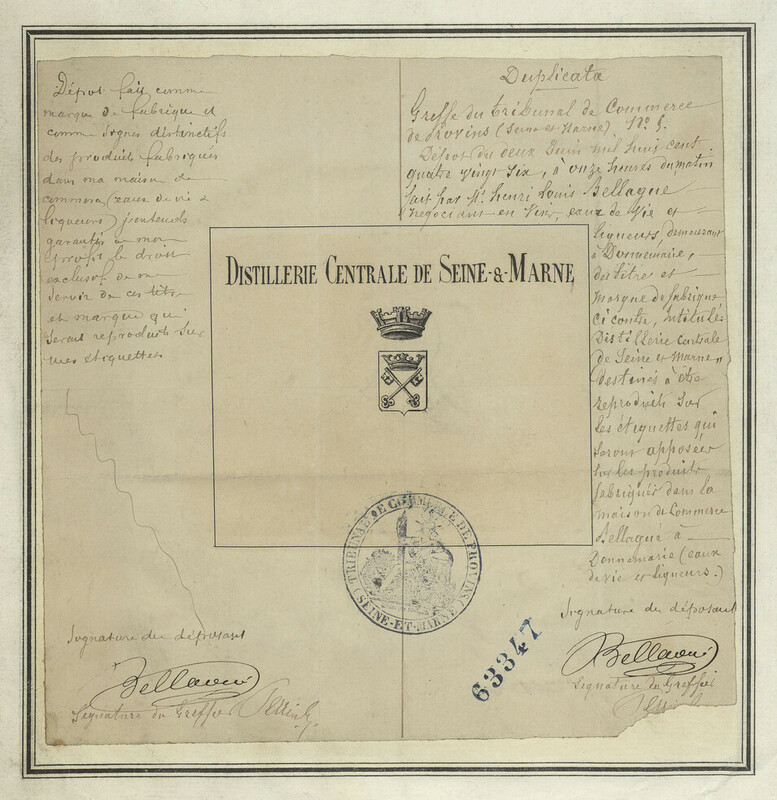 Dépot fait comme
marque de fabrique et
comme signes distinctifs
des produits fabriqués
dans ma maison de
commerce (eaux de vie &
liqueurs) j'entends
garantir à mon
profit le droit
exclusif de me
servir de ces titre
et marque qui
seront reproduits sur
mes étiquettes
Signature du déposant
Bellagué
Signature du Greffier
Duplicata
Greffe du tribunal de Commerce
de Provins (Seine et Marne). No 5.
Dépot du deux Juin mil huit cent
quatre vingt six, à onze heures du matin
fait par Mr. Henri Louis Bellague
négociant en Vins, eaux de Vie et
liqueurs, demeurant
à Donnemarie,
des titre et
marque de fabrique
ci contre, intitulés
Distillerie Centrale
de Seine et Marne,
destinés à être
reproduits sur
les étiquettes qui
seront apposées
sur les produits
fabriqués dans la
maison de Commerce
Bellagué à
Donnemarie (eaux
de vie et liqueurs.)
Signature du déposant
Bellagué
Signature du Greffier
DISTILLERIE CENTRALE DE SEINE-&-MARNE
TRIBUNAL DE COMMERCE DE PROVINS
(SEINE-ET-MARNE)
63347